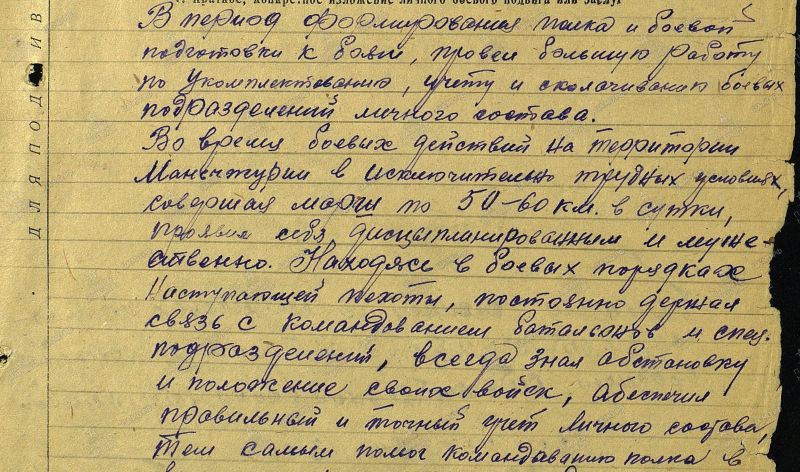 Краткое, конкретное изложение личного боевого подвига или заслуг
В период формирования полка и боевой
подготовки к боям, провел большую работу
по укомплектованию, учету и сколачиванию боевых
подразделений личного состава.
Во время боевых действий на территории
Манчжурии в исключительно трудных условиях,
совершая марши по 50-60 км. в сутки,
проявил себя дисцыпланированным и муже-
ственно. Находясь в боевых порядках
наступающей пехоты, постоянно держал
связь с командованием батальонов и спец.
подразделений, всегда знал обстановку
и положение своих войск, обеспечил
правильный и точный учет личного состава,
тем самым помог командыванию полка в
ДЛЯ ПОДШИВ